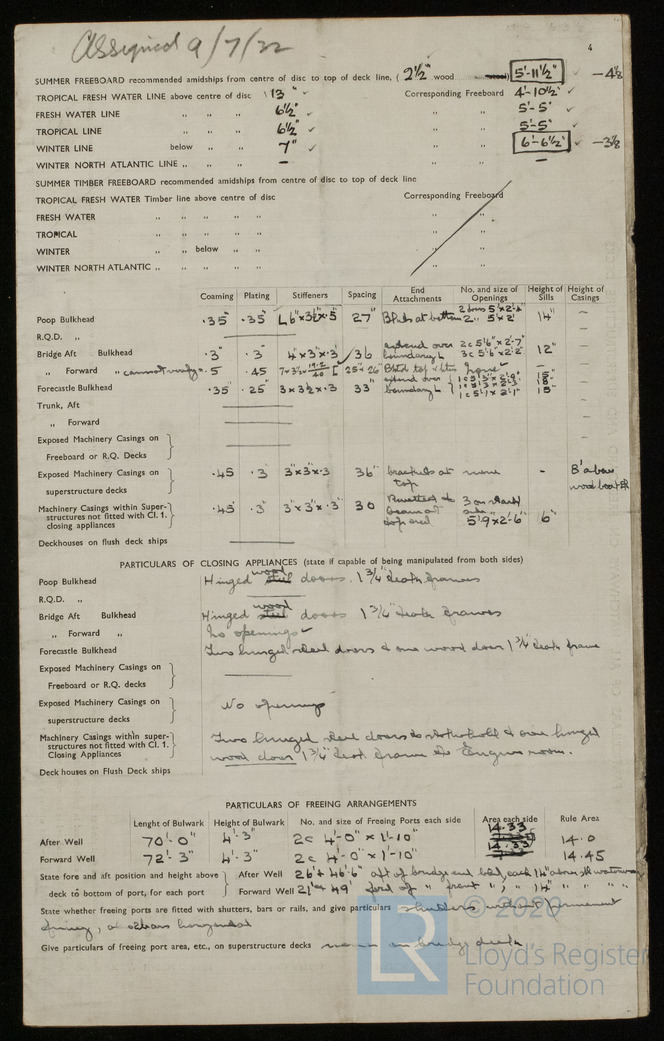 Assigned 9/7/32
4
SUMMER FREEBOARD recommended amidships from centre of disc to top of deck line, ( 2½" wood ) 5'-11½" —4⅛
TROPICAL FRESH WATER LINE above centre of disc 13" ✓ Corresponding Freeboard 4'-10½" ✓
FRESH WATER LINE „ „ „ 6½" ✓ „ „ 5'-5" ✓
TROPICAL LINE „ „ „ 6½" ✓ „ „ 5'-5" ✓
WINTER LINE below „ „ 7" ✓ „ „ 6'-6½" ✓ —3⅛
WINTER NORTH ATLANTIC LINE „ „ „ — „ „ —
SUMMER TIMBER FREEBOARD recommended amidships from centre of disc to top of deck line
TROPICAL FRESH WATER Timber line above centre of disc Corresponding Freeboard
FRESH WATER „ „ „ „ „ „
TROPICAL „ „ „ „ „ „
WINTER „ „ below „ „ „ „
WINTER NORTH ATLANTIC „ „ „ „ „ „
Coaming Plating Stiffeners Spacing End Attachments No. and size of Openings Height of Sills Height of Casings
Poop Bulkhead .35" .35" 27" Bkts at bottom 2 doors 14" —
R.Q.D. „
Bridge Aft Bulkhead .3" .3" 4"×3"×.3 36 extend over boundary L 2c 5'6"×2'-7" 3c 5'6"×2'2" 12" —
„ Forward „ "cannot verify" .5 .45 25"×26" none —
Forecastle Bulkhead .35" .25" 3×3½×.3 33" extend over boundary L
Trunk, Aft
„ Forward
Exposed Machinery Casings on
Freeboard or R.Q. Decks
Exposed Machinery Casings on
superstructure decks .45 .3" 3"×3"×.3 36" brackets at top none - 8' above
Machinery Casings within Super-
structures not fitted with Cl. 1.
closing appliances .45" .3" 3"×3"×.3" 30 5'9×2'-6" 6"
Deckhouses on flush deck ships
PARTICULARS OF CLOSING APPLIANCES (state if capable of being manipulated from both sides)
Poop Bulkhead Hinged wood doors. 1¾" teak frames
R.Q.D. „
Bridge Aft Bulkhead Hinged wood doors 1¾" teak frames
„ Forward „ No openings
Forecastle Bulkhead Two hinged steel doors & one wood door 1¾" teak frame
Exposed Machinery Casings on
Freeboard or R.Q. decks
Exposed Machinery Casings on
superstructure decks No openings
Machinery Casings within super-
structures not fitted with Cl. 1.
Closing Appliances Two hinged steel doors to stokehold & one hinged
wood door 1¾" teak frame to Engine room.
Deck houses on Flush Deck ships
PARTICULARS OF FREEING ARRANGEMENTS
Lenght of Bulwark Height of Bulwark No. and size of Freeing Ports each side Area each side Rule Area
After Well 70'-0" 4'-3" 2c 4'-0" × 1'-10" 14.33 14.0
Forward Well 72'-3" 4'-3" 2c 4'-0" × 1'-10" 14.33 14.45
State fore and aft position and height above After Well 26' & 46'6" aft of bridge end bhd, each 14" above waterway
deck to bottom of port, for each port Forward Well 21' & 49' ford of „ front „ , „ 14" „ „ „
State whether freeing ports are fitted with shutters, bars or rails, and give particulars shutters without permanent
horizontal
Give particulars of freeing port area, etc., on superstructure decks none on bridge deck
© 2020
LR
Lloyd's Register
Foundation